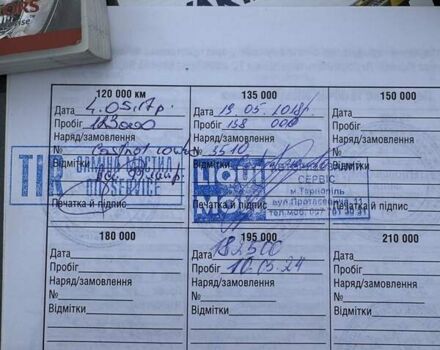 120 000 км
Дата 4.05.17р.
Пробіг 123000
Наряд/замовлення
№ Castrol
Відмітки
ЗАМІНА МАСТИЛ
OIL SERVICE
Печатка й підпис
135 000
Дата 19.05.2018р.
Пробіг 138 000
Наряд/замовлення
№ 5W10
Відмітки
LIQUI
MOLY
СЕРВІС
м.Тернопіль
вул.Протасевича
тел.моб.
Печатка й підпис
150 000
Дата
Пробіг
Наряд/замовлення
№
Відмітки
Печатка й підпис
180 000
Дата
Пробіг
Наряд/замовлення
№
Відмітки
195 000
Дата 182500
Пробіг 10.03.24
Наряд/замовлення
№
Відмітки
210 000
Дата
Пробіг
Наряд/замовлення
№
Відмітки